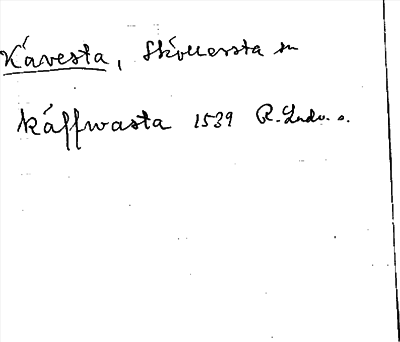 Kåvesta, Sköllersta sn
kåffwasta 1539 R. Ludv. s.